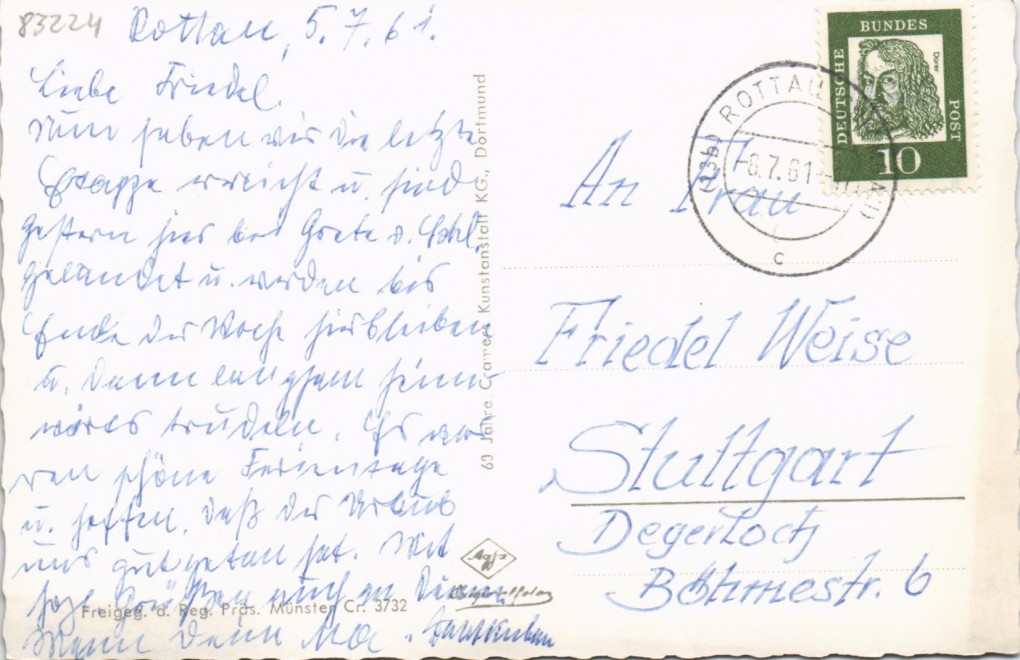 83224 Rottau, 5.7.61.
Liebe Friedel.
Nun haben wir die letzte
Etappe erreicht u. sind
gestern hier bei Grete v. Schl.
gelandet u. werden bis
Ende der Woche hierbleiben
u. dann langsam heim-
wärts trudeln. Es wa-
ren schöne Ferientage
u. hoffen, daß der Urlaub
uns gut getan hat. Mit
herzl. Grüßen auch an Deinen
Mann Deine
60 Jahre Cramers Kunstanstalt KG., Dortmund
Agfa
Freigeg. d. Reg. Präs. Münster Cr. 3732
DEUTSCHE BUNDES POST
Dürer
10
ROTTAU
-6.7.61
c
An Frau
Friedel Weise
Stuttgart
Degerloch
Böhmestr. 6